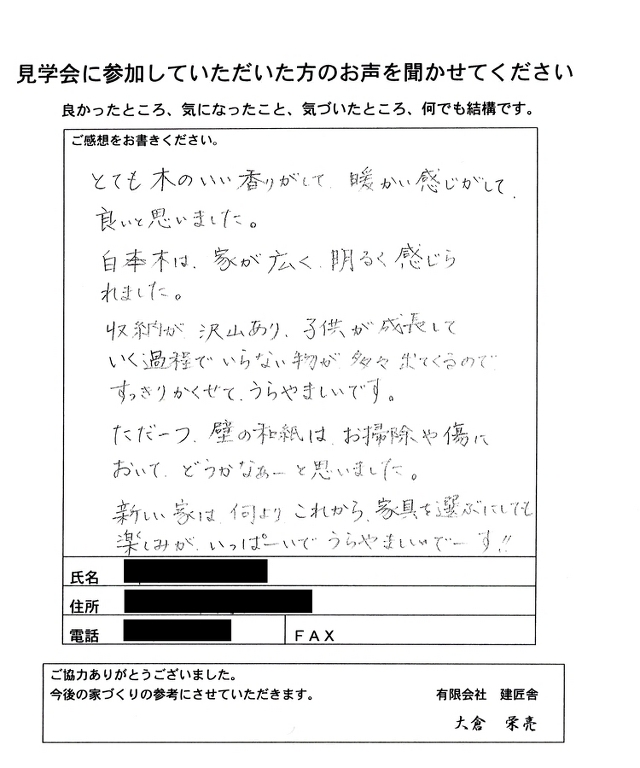 見学会に参加していただいた方のお声を聞かせてください
良かったところ、気になったこと、気づいたところ、何でも結構です。
ご感想をお書きください。
とても木のいい香りがして、暖かい感じがして、
良いと思いました。
白木は、家が広く、明るく感じら
れました。
収納が、沢山あり、子供が成長して
いく過程でいらない物が多々出てくるので
すっきりかくせて、うらやましいです。
ただ一つ、壁の和紙は、お掃除や傷に
おいて、どうかなぁーと思いました。
新しい家は、何より、これから、家具を選ぶにしても
楽しみが、いっぱーいで うらやましいでーす!!
氏名
住所
電話 FAX
ご協力ありがとうございました。
今後の家づくりの参考にさせていただきます。
有限会社 建匠舎
大倉 栄亮